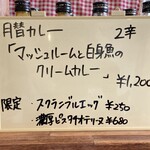 月替カレー 2辛
「マッシュルームと白身魚の
クリームカレー」
¥1,200
限定・スクランブルエッグ ¥250
・濃厚ピスタチオテリーヌ ¥680